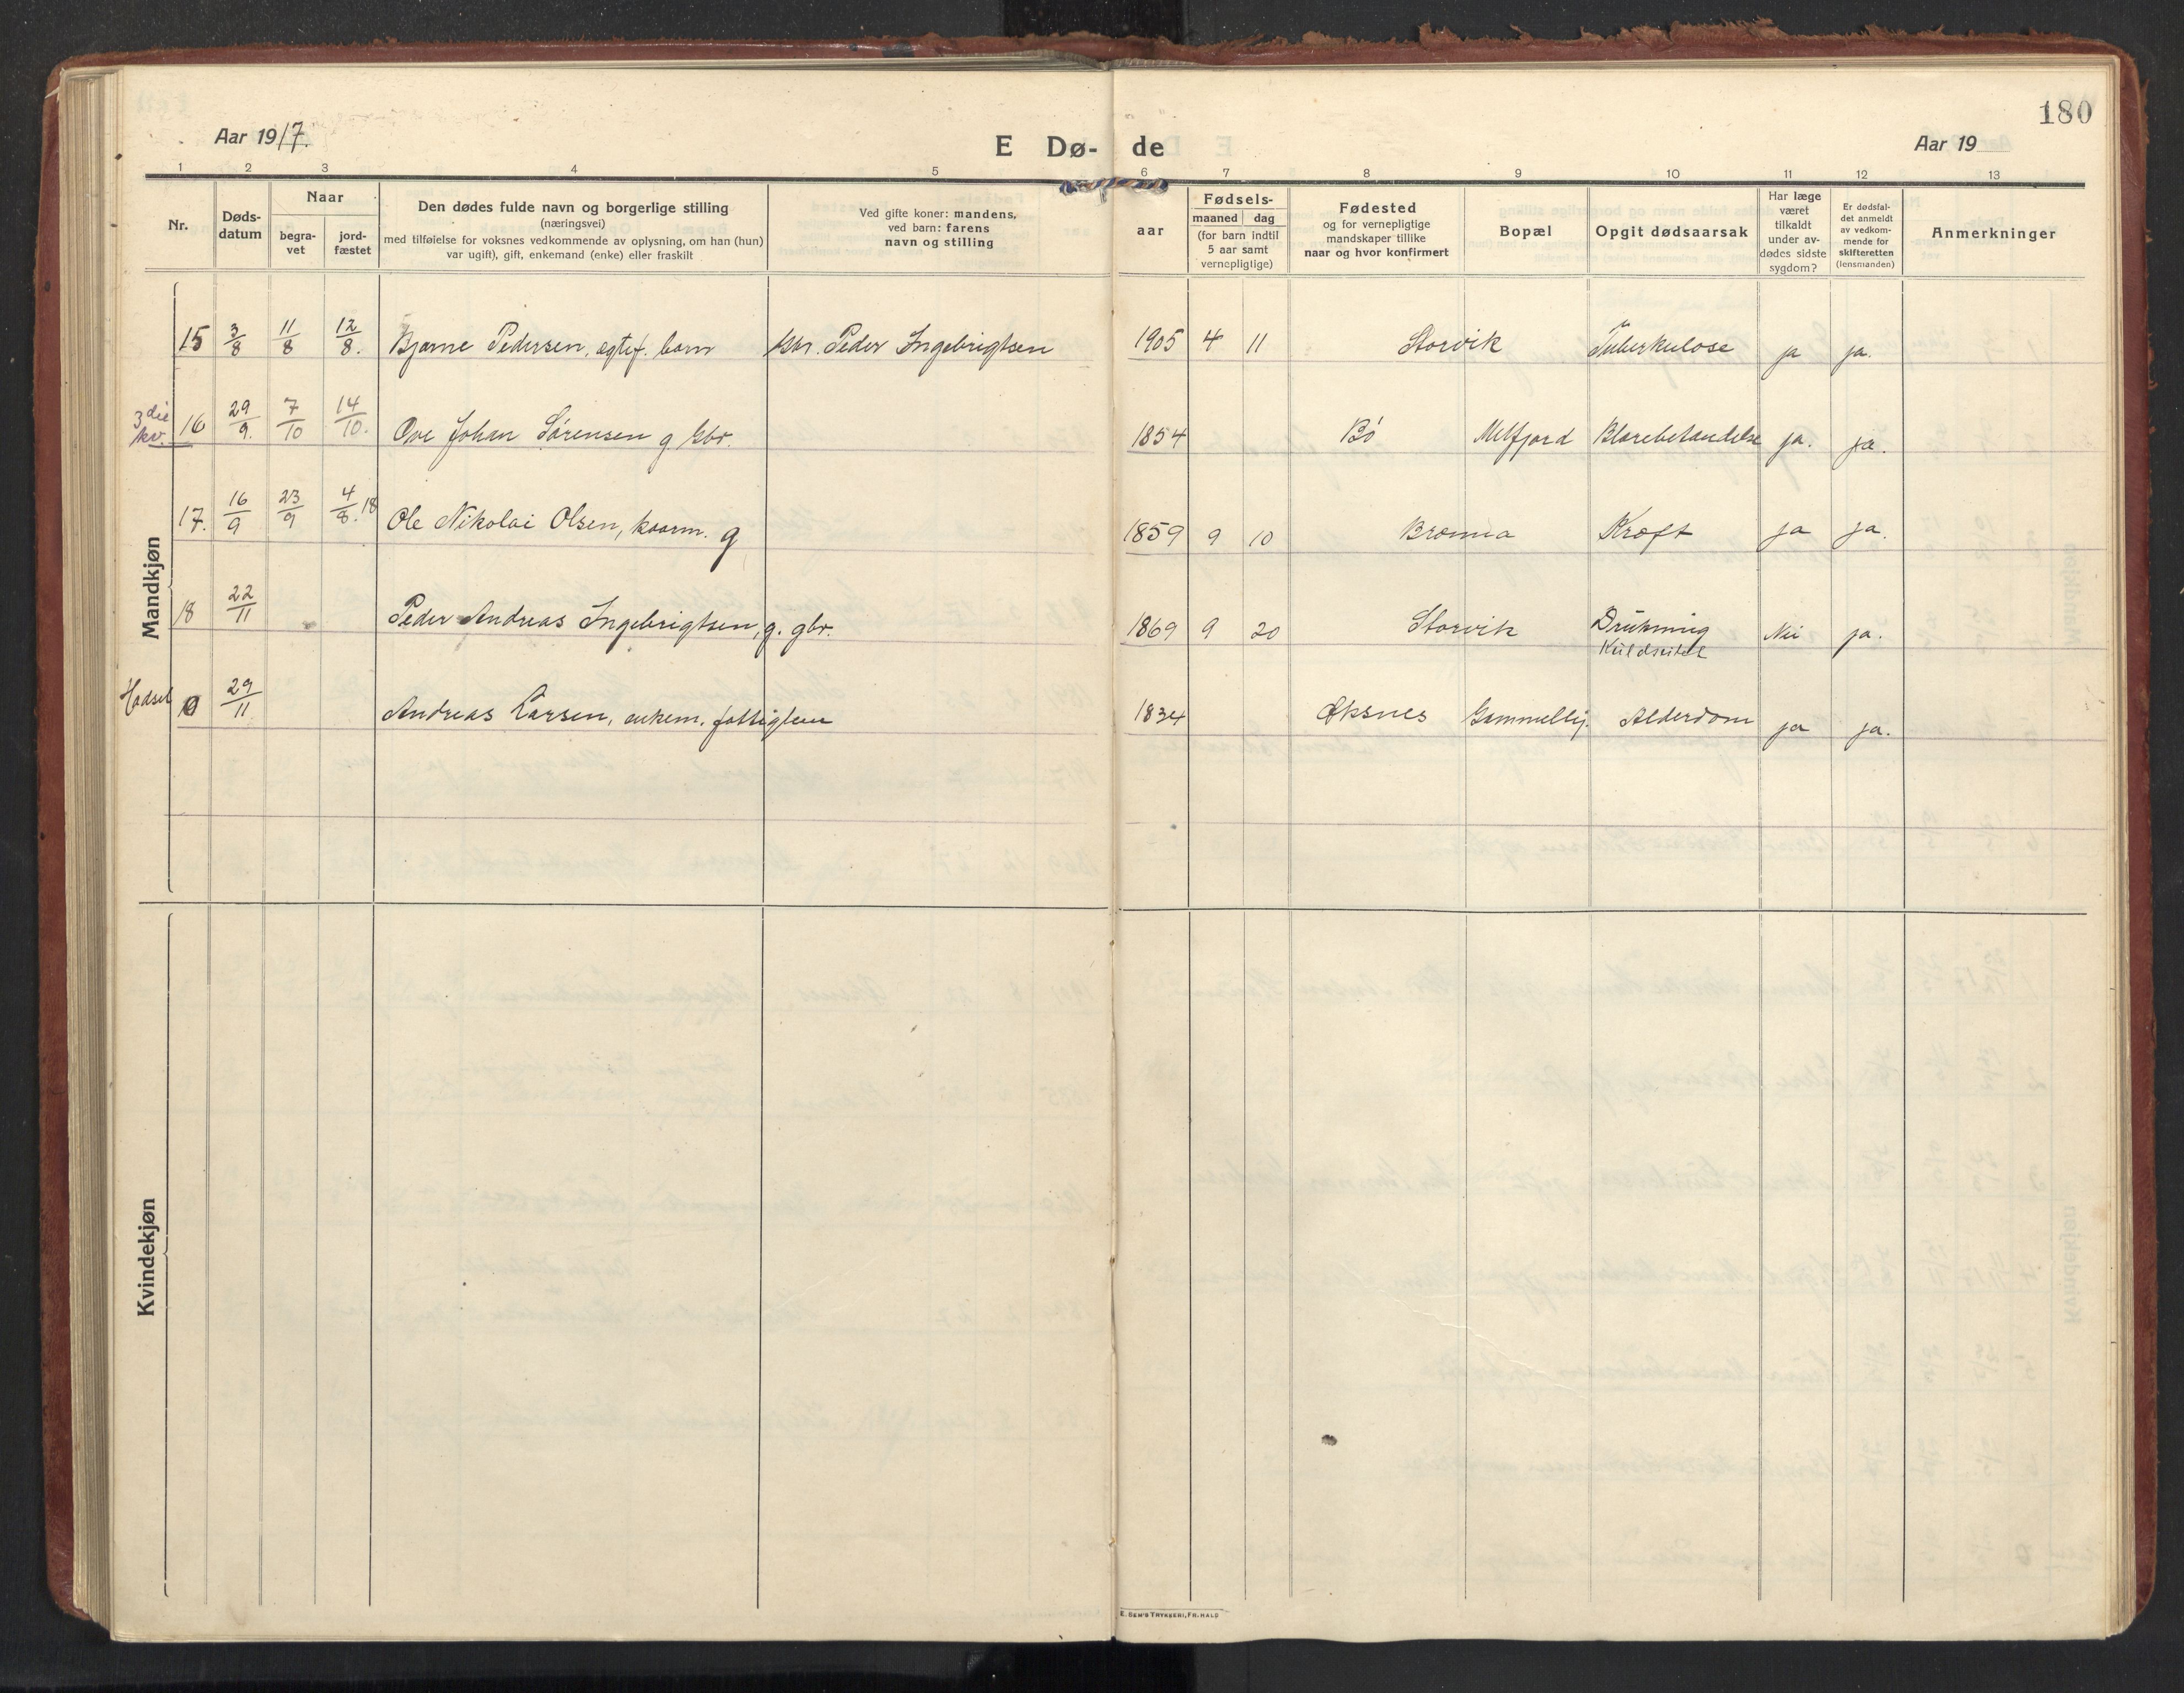 180
Aar 1917.
E Dø-
de
Aar 19
1 2 3 4 5 6 7 8 9 10 11 12 13
Nr.
Døds-
datum
Naar
begra-
vet
jord-
fæstet
Den dødes fulde navn og borgerlige stilling
(næringsvei)
med tilføielse for voksnes vedkommende av oplysning, om han (hun)
var ugift), gift, enkemand (enke) eller fraskilt
Ved gifte koner: mandens,
ved barn: farens
navn og stilling
aar
Fødsels-
maaned dag
(for barn indtil
5 aar samt
vernepligtige)
Fødested
og for vernepligtige
mandskaper tillike
naar og hvor konfirmert
Bopæl
Opgit dødsaarsak
Har læge
været
tilkaldt
under av-
dødes sidste
sygdom?
Er dødsfal-
det anmeldt
av vedkom-
mende for
skifteretten
(lensmanden)
Anmerkninger
Mandkjøn
15 3/8 11/8 12/8. Bjarne Pedersen, ægtef. barn Gbr. Peder Ingebrigtsen 1905 4 11 Storvik Tuberkulose ja ja.
3die kv. 16 29/9. 7/10 14/10. Ove Johan Sørensen g. Gbr. 1854 Bø Melfjord Blærebetændelse ja. ja.
17. 16/9 23/9 4/8.18 Ole Nikolai Olsen, kaarm. g 1859 9 10 Bremna Kræft ja ja.
18 22/11 Peder Andreas Ingebrigtsen, g. gbr. 1869 9 20 Storvik Drukning Nei ja.
Kuldseilet
Hadsel 0 29/11 Andreas Larsen, enkem. fattiglem 1834 Øksnes Gammellej. Alderdom ja ja.
Kvindekjøn
E. SEM'S TRYKKERI, FR. HALD